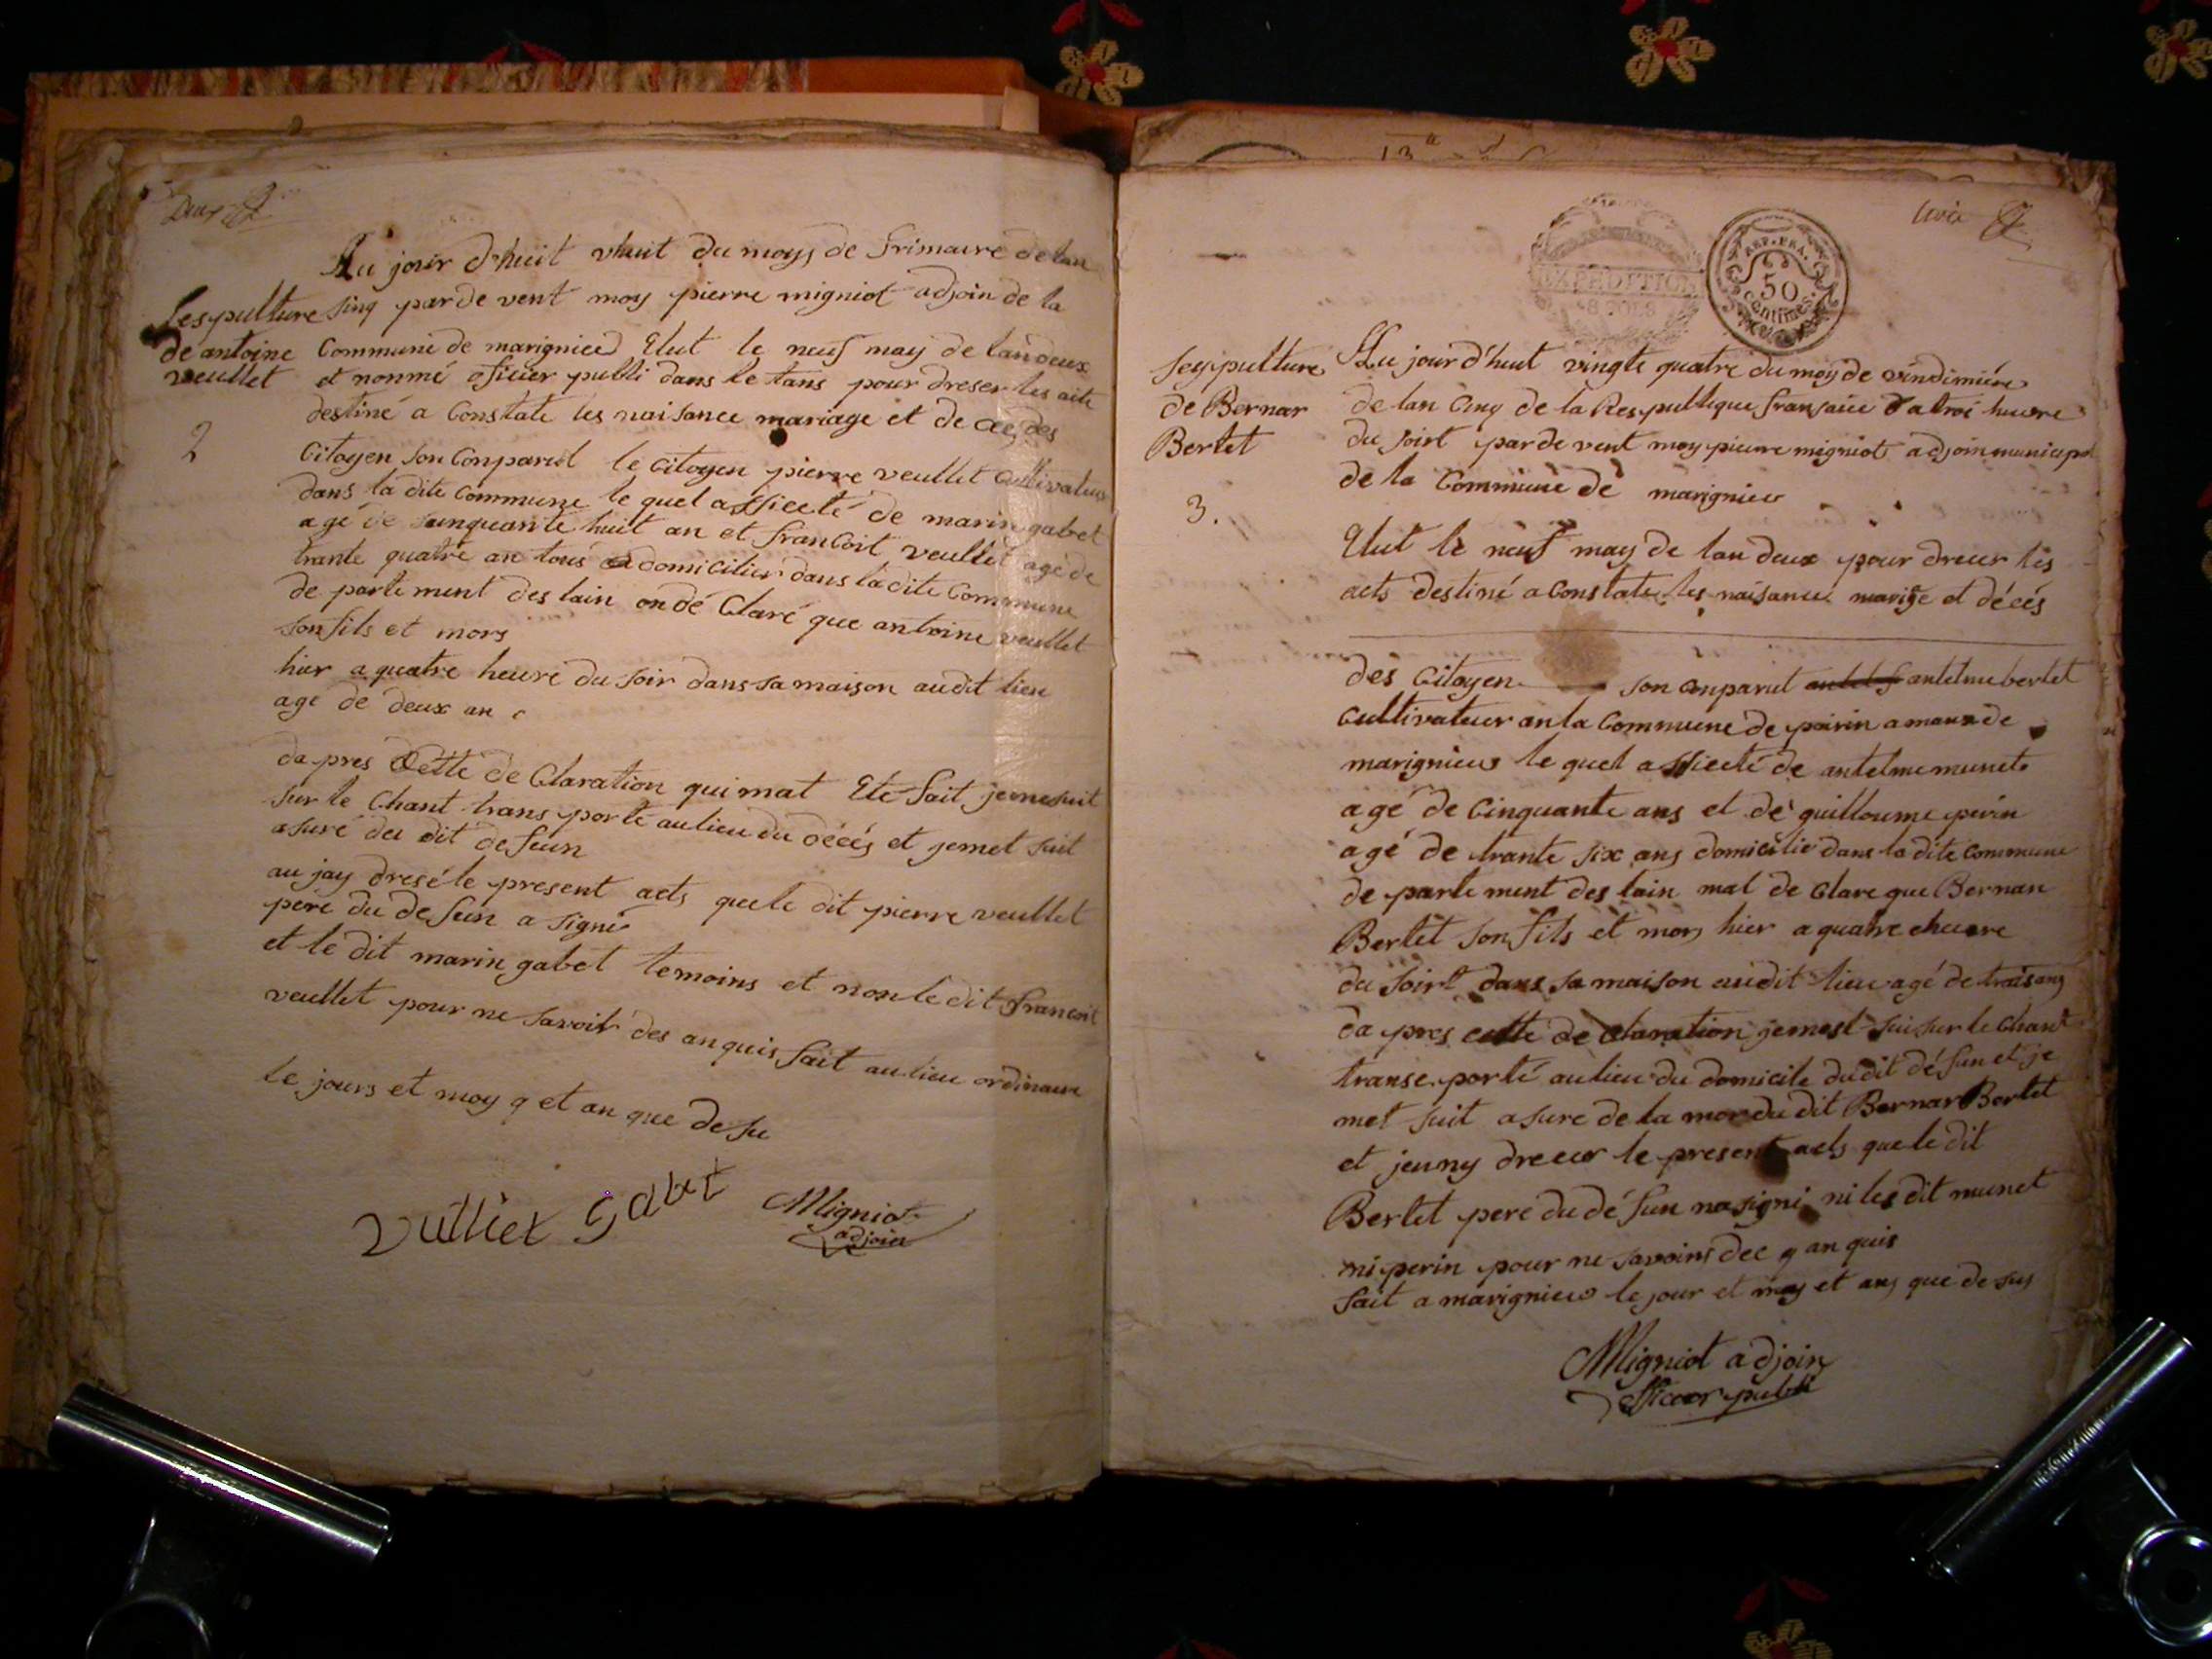 Deux
Au jour d'huit vhuit du moys de frimaire de lan
Sespulture sinq par de vent moy pierre migniot adjoin de la
de antoine Commune de marignieu Elut le neuf may de lan deux
veullet et nonmé oficier publi dans le tans pour dreser les acte
destiné a Constate les naisance mariage et de ces des
2
Citoyen son Conparut le Citoyen pierre veullet Cultivateur
dans la dite Commune le quel assiecté de marin gabet
agé de sunquante huit an et francoit veullet agé de
trante quatre an tous domicilier dans la dite Commune
de parte ment des lain on dé Claré que antoine veullet
son fils et mors
hier a quatre heure du soir dans sa maison audit lieu
age de deux an
da pres Cette de Claration qui mat Eté fait je me suit
sur le Chant trans porté au lieu du décés et je met suit
asuré du dit defeun
au jay dresé le present acts que le dit pierre veullet
pere du defeun a signé
et le dit marin gabet temoins et non le dit francoit
veullet pour ne savoir des an quis fait au lieu ordinaire
le jours et moy q et an que de su
vulliet gabet Migniot
adjoin
13
EXPEDITION
8 SOLS
REP. FRA.
50
centimes.
troi
Seypulture
de Bernar
Bertet
3.
Au jour d'hut vingte quatre du moy de vindimiére
de lan Cinq de la Respullique fransaice a troi heure
du soirt par de vent moy pierre migniot adjoin municipal
de la Commune de marignieu
Elut le neuf may de lan deux pour drecer les
acts destiné a Constate les naisance marige et décés
des Citoyen son Conparut antelme bertet
Cultivateur an la Commune de poirin a maux de
marignieu le quel assiecté de antelme munet
agé de Cinquante ans et de guilloume perin
agé de trante six ans domicilié dans la dite Commune
de parte ment des lain mat de Clare que Bernar
Bertet son fils et mors hier a quatre cheure
du soirt dans sa maison audit lieu agé de trois ans
da pres cette de Claration je mest suis sur le Chant
transe porté au lieu du domicile du dit défun et je
met suit asure de la mor du dit Bernar Bertet
et jeu ny dreceer le present acts que le dit
Bertet pere du défun na signé ni les dit munet
ni perin pour ne savoins dec q an quis
fait a marignieu le jour et moy et ans que de sus
Migniot adjoin
officer publi